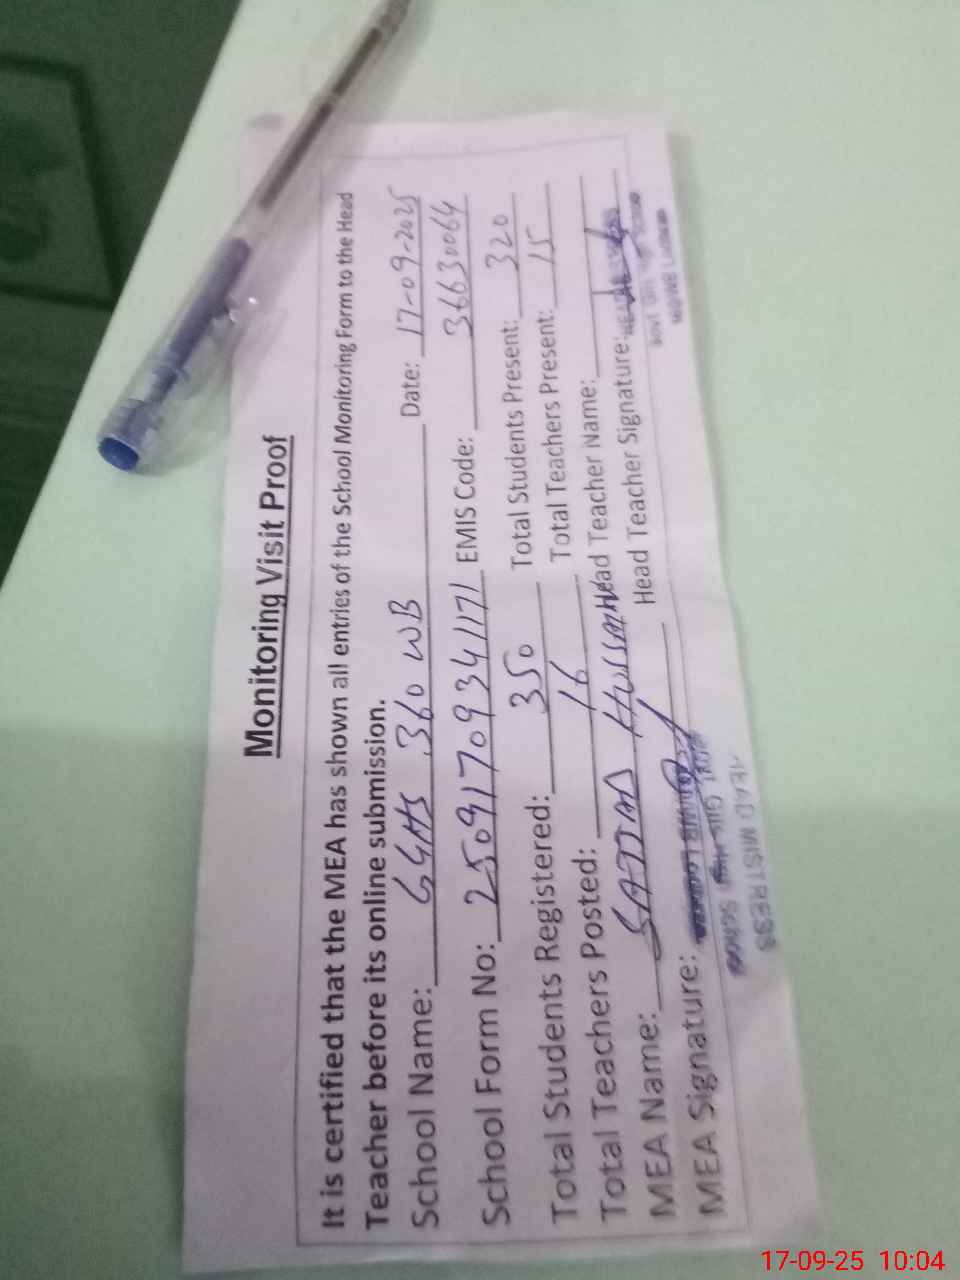 Monitoring Visit Proof
It is certified that the MEA has shown all entries of the School Monitoring Form to the Head
Teacher before its online submission.
School Name: GGHS 360 WB Date: 17-09-2025
School Form No: 25091709341171 EMIS Code: 36630064
Total Students Registered: 350 Total Students Present: 320
Total Teachers Posted: 16 Total Teachers Present: 15
MEA Name: SAJJAD HUSSAIN Head Teacher Name:
MEA Signature: Head Teacher Signature:
HEAD MISTRESS
17-09-25 10:04